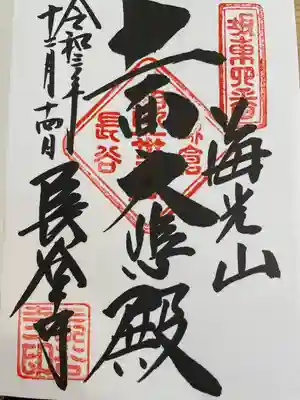 坂東四番
海光山
十一面大悲殿
鎌倉
長谷
令和三年
十二月十四日
長谷寺